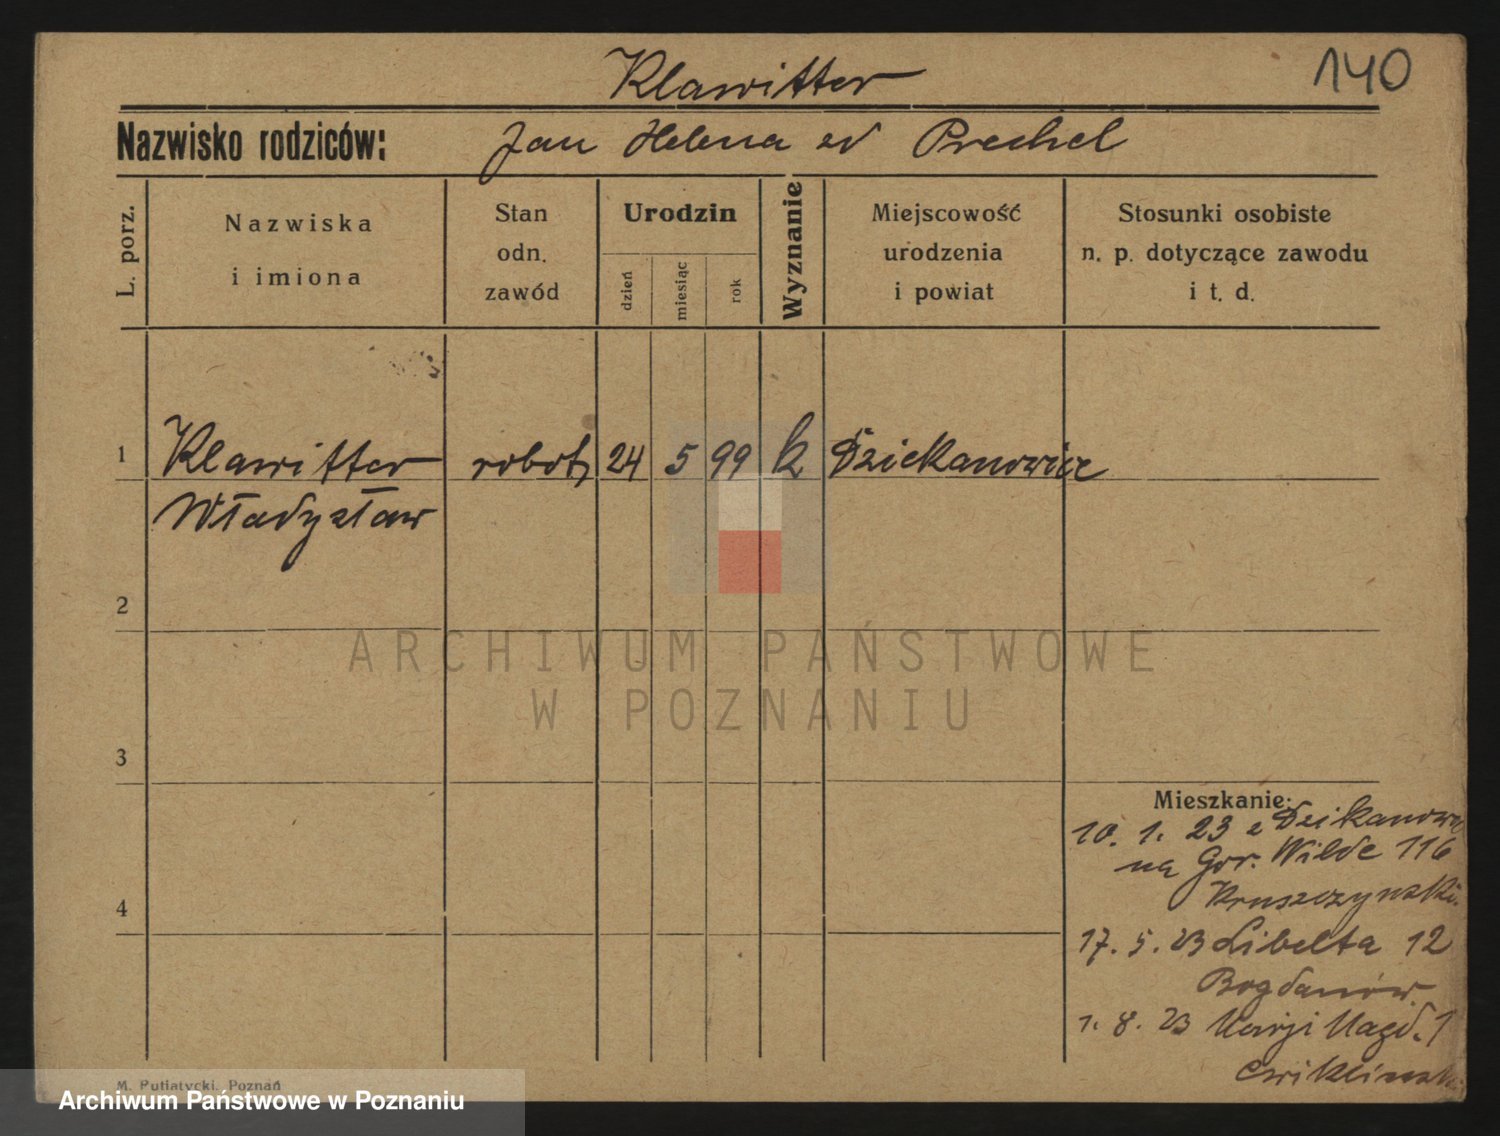 Klawitter
140
Nazwisko rodziców: Jan Helena zd Prechel
L. porz.
Nazwiska
i imiona
Stan
odn.
zawód
Urodzin
dzień
miesiąc
rok
Wyznanie
Miejscowość
urodzenia
i powiat
Stosunki osobiste
n. p. dotyczące zawodu
i t. d.
1 Klawitter robotn 24 5 99 k Dziekanowice
Władysław
2
ARCHIWUM PAŃSTWOWE
W POZNANIU
3
Mieszkanie:
10. 1. 23 z Dzikanowic
na Gór. Wilde 116
Kruszczynski.
4
17. 5. 23 Libelta 12
Bogdanów.
1. 8. 23 Marji Magd. 1
Cwiklinski
M. Putiatycki, Poznań
Archiwum Państwowe w Poznaniu